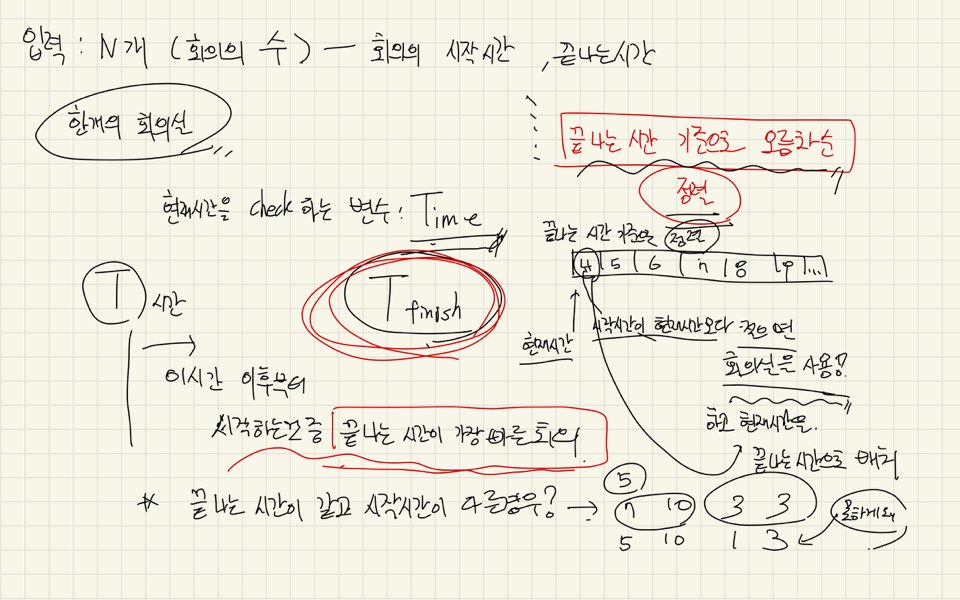 입력 : N개 (회의의 수) — 회의의 시작시간 , 끝나는시간
한개의 회의실
끝나는 시간 기준으로 오름차순
정렬
현재시간을 check 하는 변수 : Time
끝나는 시간 기준으로 정렬
4 5 6 7 8 9 ...
T 시간
T finish
현재시간
시작시간이 현재시간보다 작으면
회의실을 사용
하고 현재시간을
끝나는시간으로 배치
→ 이시간 이후부터
시작하는건 중 끝나는 시간이 가장 빠른 회의
* 끝나는 시간이 같고 시작시간이 다른경우? →
5
7 10 3 3
5 10 1 3